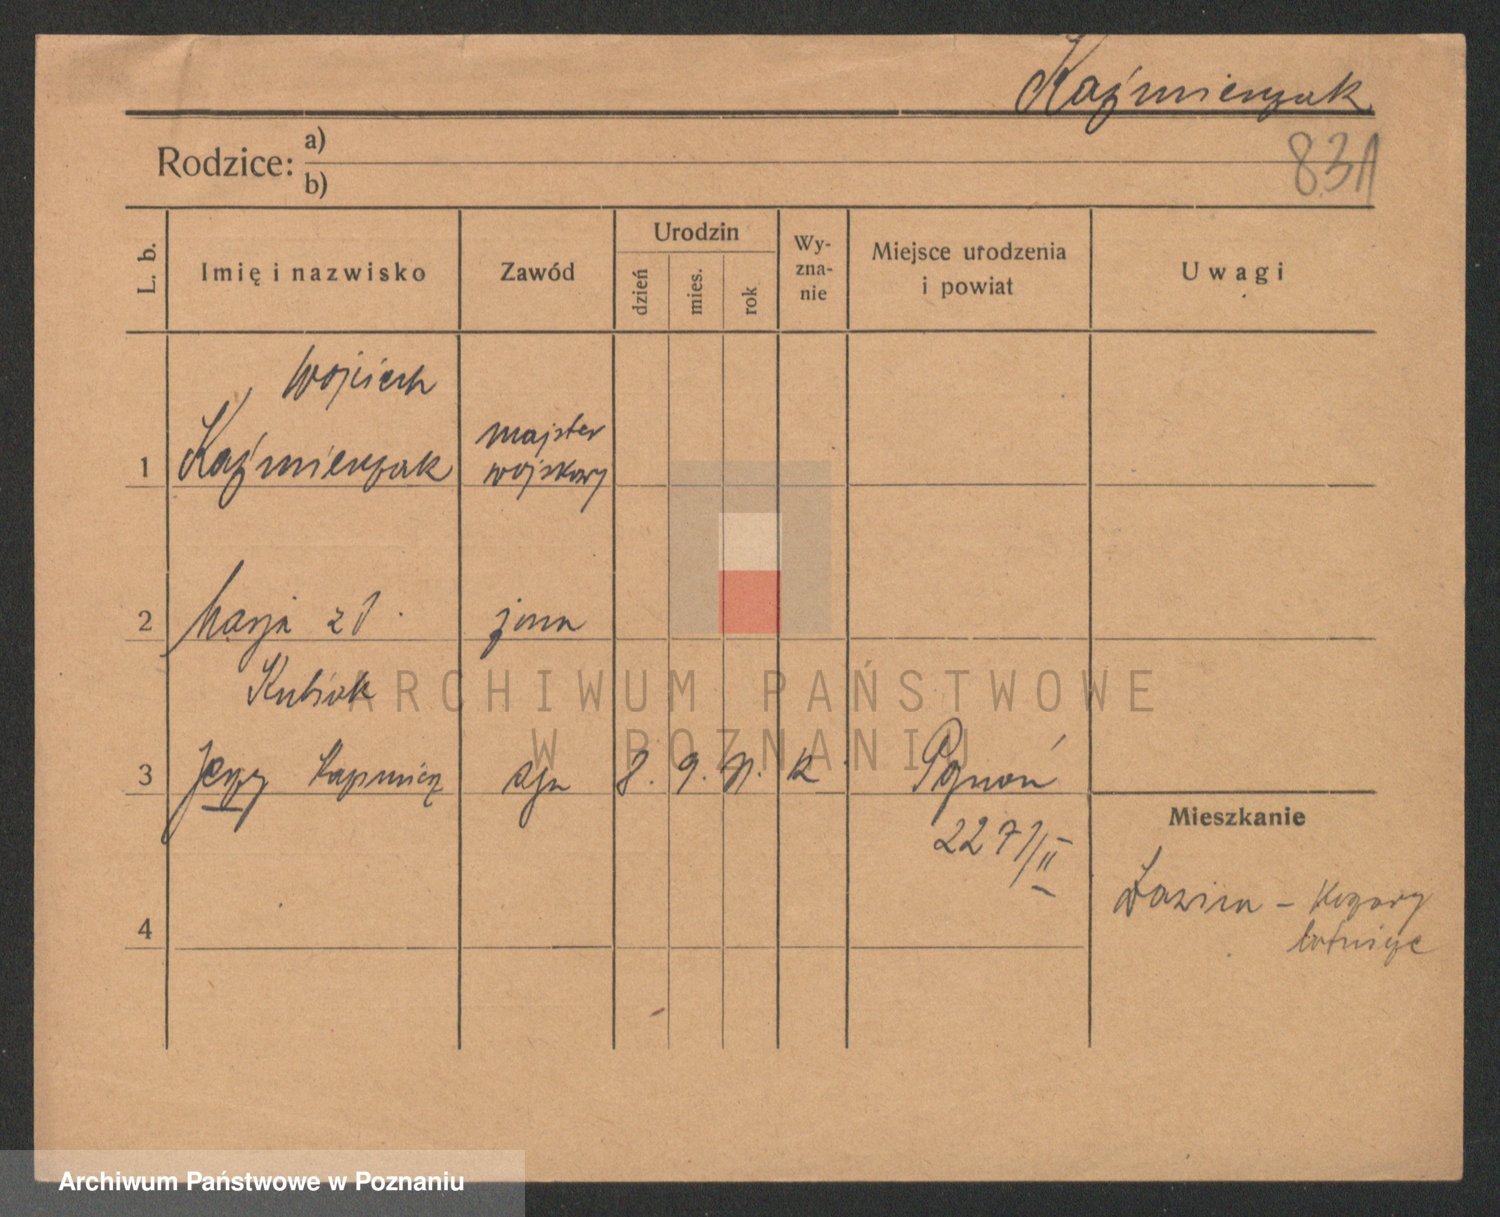 Kaźmierzak
831
Rodzice:
a)
b)
L. b.
Imię i nazwisko
Zawód
Urodzin
dzień
mies.
rok
Wy-
zna-
nie
Miejsce urodzenia
i powiat
Uwagi
Wojciech
1 Kaźmierzak
majster
wojskowy
2 Marja z d.
żona
Kubiak
3 Jerzy Kazimierz syn 8. 9. k. Poznań
2271/II
Mieszkanie
Ławica - Koszary
lotnicze
4
ARCHIWUM PAŃSTWOWE
W POZNANIU
Archiwum Państwowe w Poznaniu